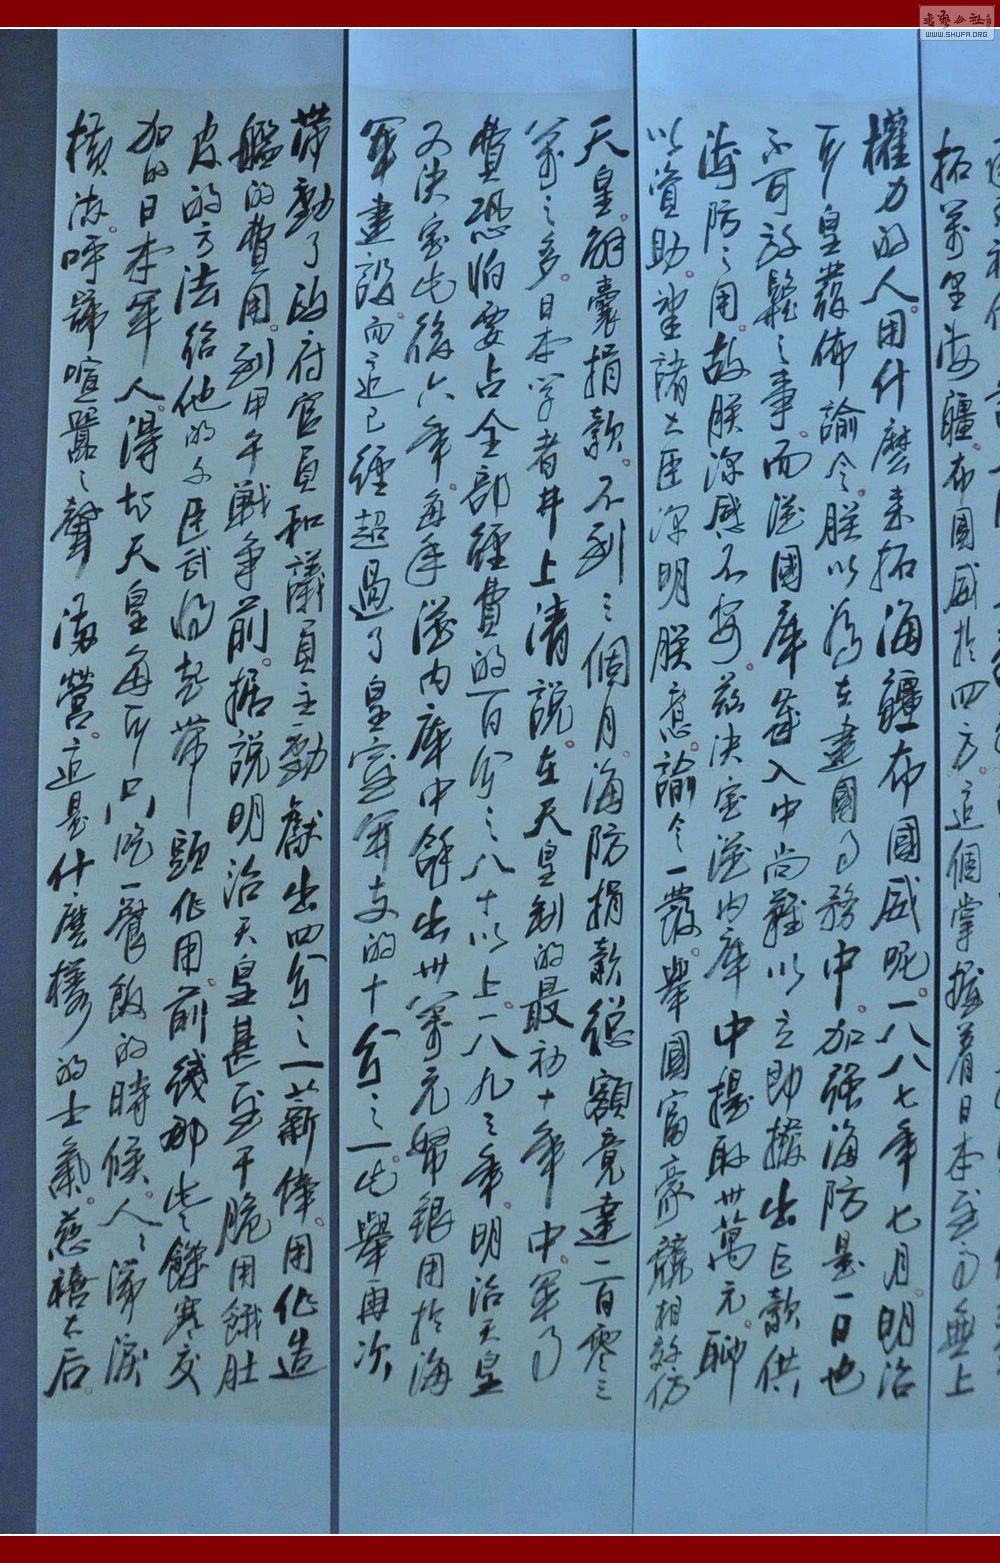 拓萬里海疆布國威於四方這個掌握着日本至高無上
權力的人用什麼来拓海疆布國威呢一八八七年七月明治
天皇發佈諭令朕以為在建國事務中加強海防是一日也
不可放鬆之事而從國庫歲入中尚難以立即撥出巨款供
海防之用故朕深感不安茲決定從内庫中提取卅萬元聊
以資助望諸大臣深明朕意諭令一發舉國富豪競相效仿
天皇解囊捐款不到三個月海防捐款總額竟達二百零三
萬之多日本学者井上清說在天皇制的最初十年中軍事
費恐怕要占全部經費的百分之八十以上一八九三年明治天皇
又決定此後六年每年從内庫中出卅萬元帑銀用於海
軍建設而這已經超過了皇室開支的十分之一此舉再次
帶動了政府官員和議員主動獻出四分之一薪俸用作造
艦的費用到甲午戰爭前據說明治天皇甚至干脆用餓肚
皮的方法給他的文臣武將起帶頭作用前綫那些饑寒交
加的日本軍人得知天皇每天只吃一餐飯的時候人々涕淚
橫流呼號喧囂之聲滿營這是什麼樣的士氣慈禧太后
書藝公社
WWW.SHUFA.ORG